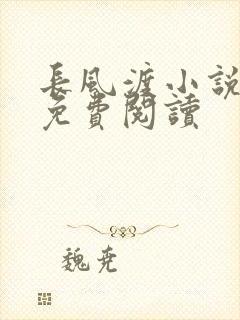 長風渡小說
免費閱讀
魏尭